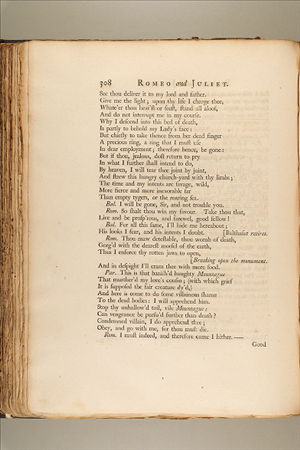 308 ROMEO and JULIET.
See thou deliver it to my lord and father.
Give me the light; upon thy life I charge thee,
Whate'er thou hear'st or seest, stand all aloof,
And do not interrupt me in my course.
Why I descend into this bed of death,
Is partly to behold my Lady's face:
But chiefly to take thence from her dead finger
A precious ring, a ring that I must use
In dear employment; therefore hence, be gone:
But if thou, jealous, dost return to pry
In what I further shall intend to do,
By heaven, I will tear thee joint by joint,
And strew this hungry church-yard with thy limbs;
The time and my intents are savage, wild,
More fierce and more inexorable far
Than empty tygers, or the roaring sea.
Bal. I will be gone, Sir, and not trouble you.
Rom. So shalt thou win my favour. Take thou that,
Live and be prosp'rous, and farewel, good fellow!
Bal. For all this same, I'll hide me hereabout;
His looks I fear, and his intents I doubt. [Balthasar retires.
Rom. Thou maw detestable, thou womb of death,
Gorg'd with the dearest morsel of the earth,
Thus I enforce thy rotten jaws to open,
[Breaking open the monument.
And in despight I'll cram thee with more food.
Par. This is that banish'd haughty Mountague
That murther'd my love's cousin; (with which grief
It is supposed the fair creature dy'd,)
And here is come to do some villainous shame
To the dead bodies: I will apprehend him.
Stop thy unhallow'd toil, vile Mountague:
Can vengeance be pursu'd further than death?
Condemned villain, I do apprehend thee;
Obey, and go with me, for thou must die.
Rom. I must indeed, and therefore came I hither.——
Good